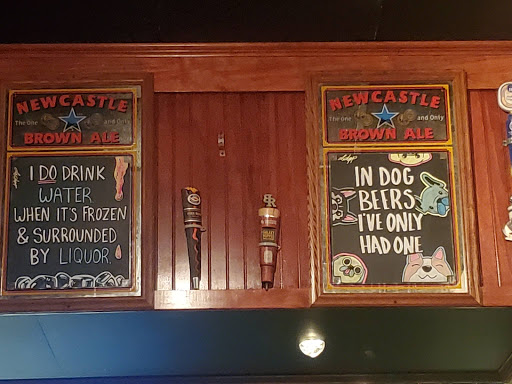 NEWCASTLE
The One and Only
BROWN ALE
I DO DRINK
WATER
WHEN IT'S FROZEN
& SURROUNDED
BY LIQUOR.
NEWCASTLE
The One and Only
BROWN ALE
IN DOG
BEERS
I'VE ONLY
HAD ONE